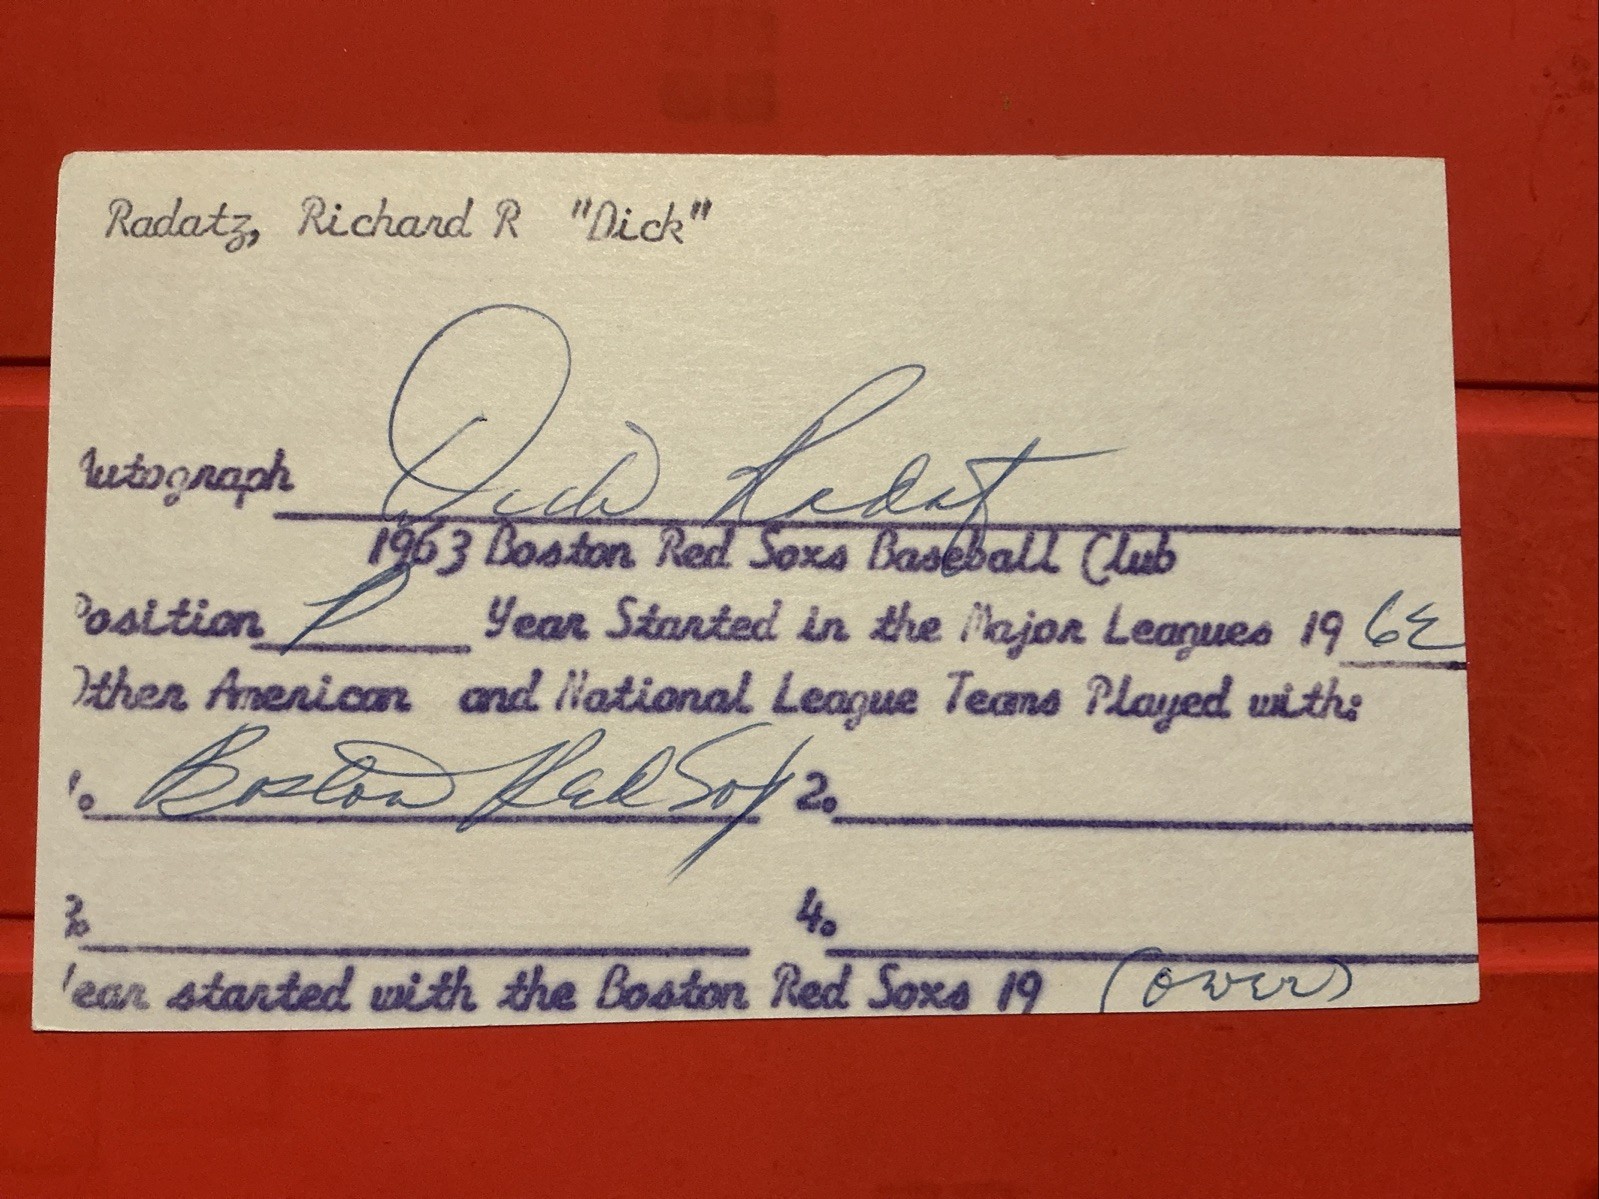 Radatz, Richard R "Dick"
Autograph Dick Radatz
1963 Boston Red Soxs Baseball Club
Position P Year Started in the Major Leagues 19 62
Other American and National League Teams Played with:
1. Boston Red Sox 2.
3. 4.
Year started with the Boston Red Soxs 19 (over)